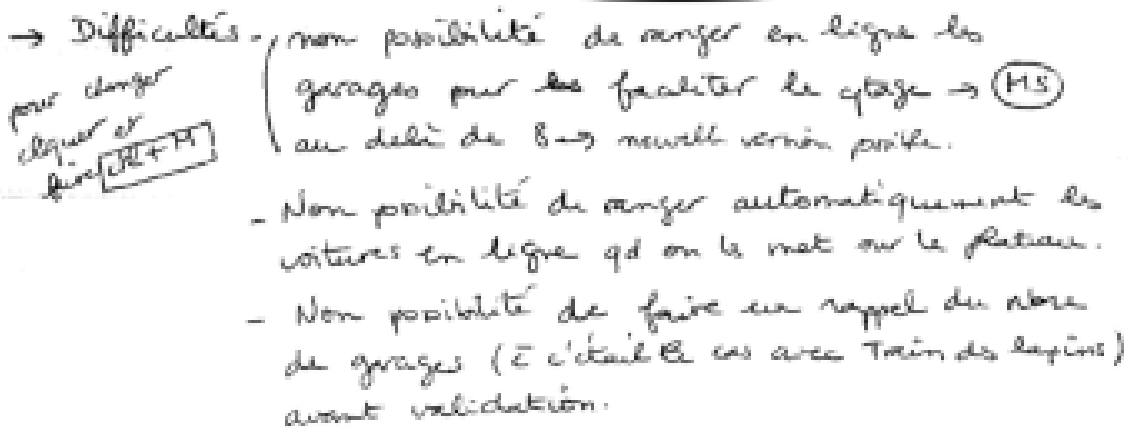 → Difficultés - non possibilité de ranger en ligne les
garages pour faciliter le cptage → MS
au delà de 8 → nouvelle version possible.
pour changer
cliquer et
faire + M
- Non possibilité de ranger automatiquement les
voitures en ligne qd on les met sur le plateau.
- Non possibilité de faire un rappel du nbre
de garages (c̄ c'était le cas avec Train des lapins)
avant validation.